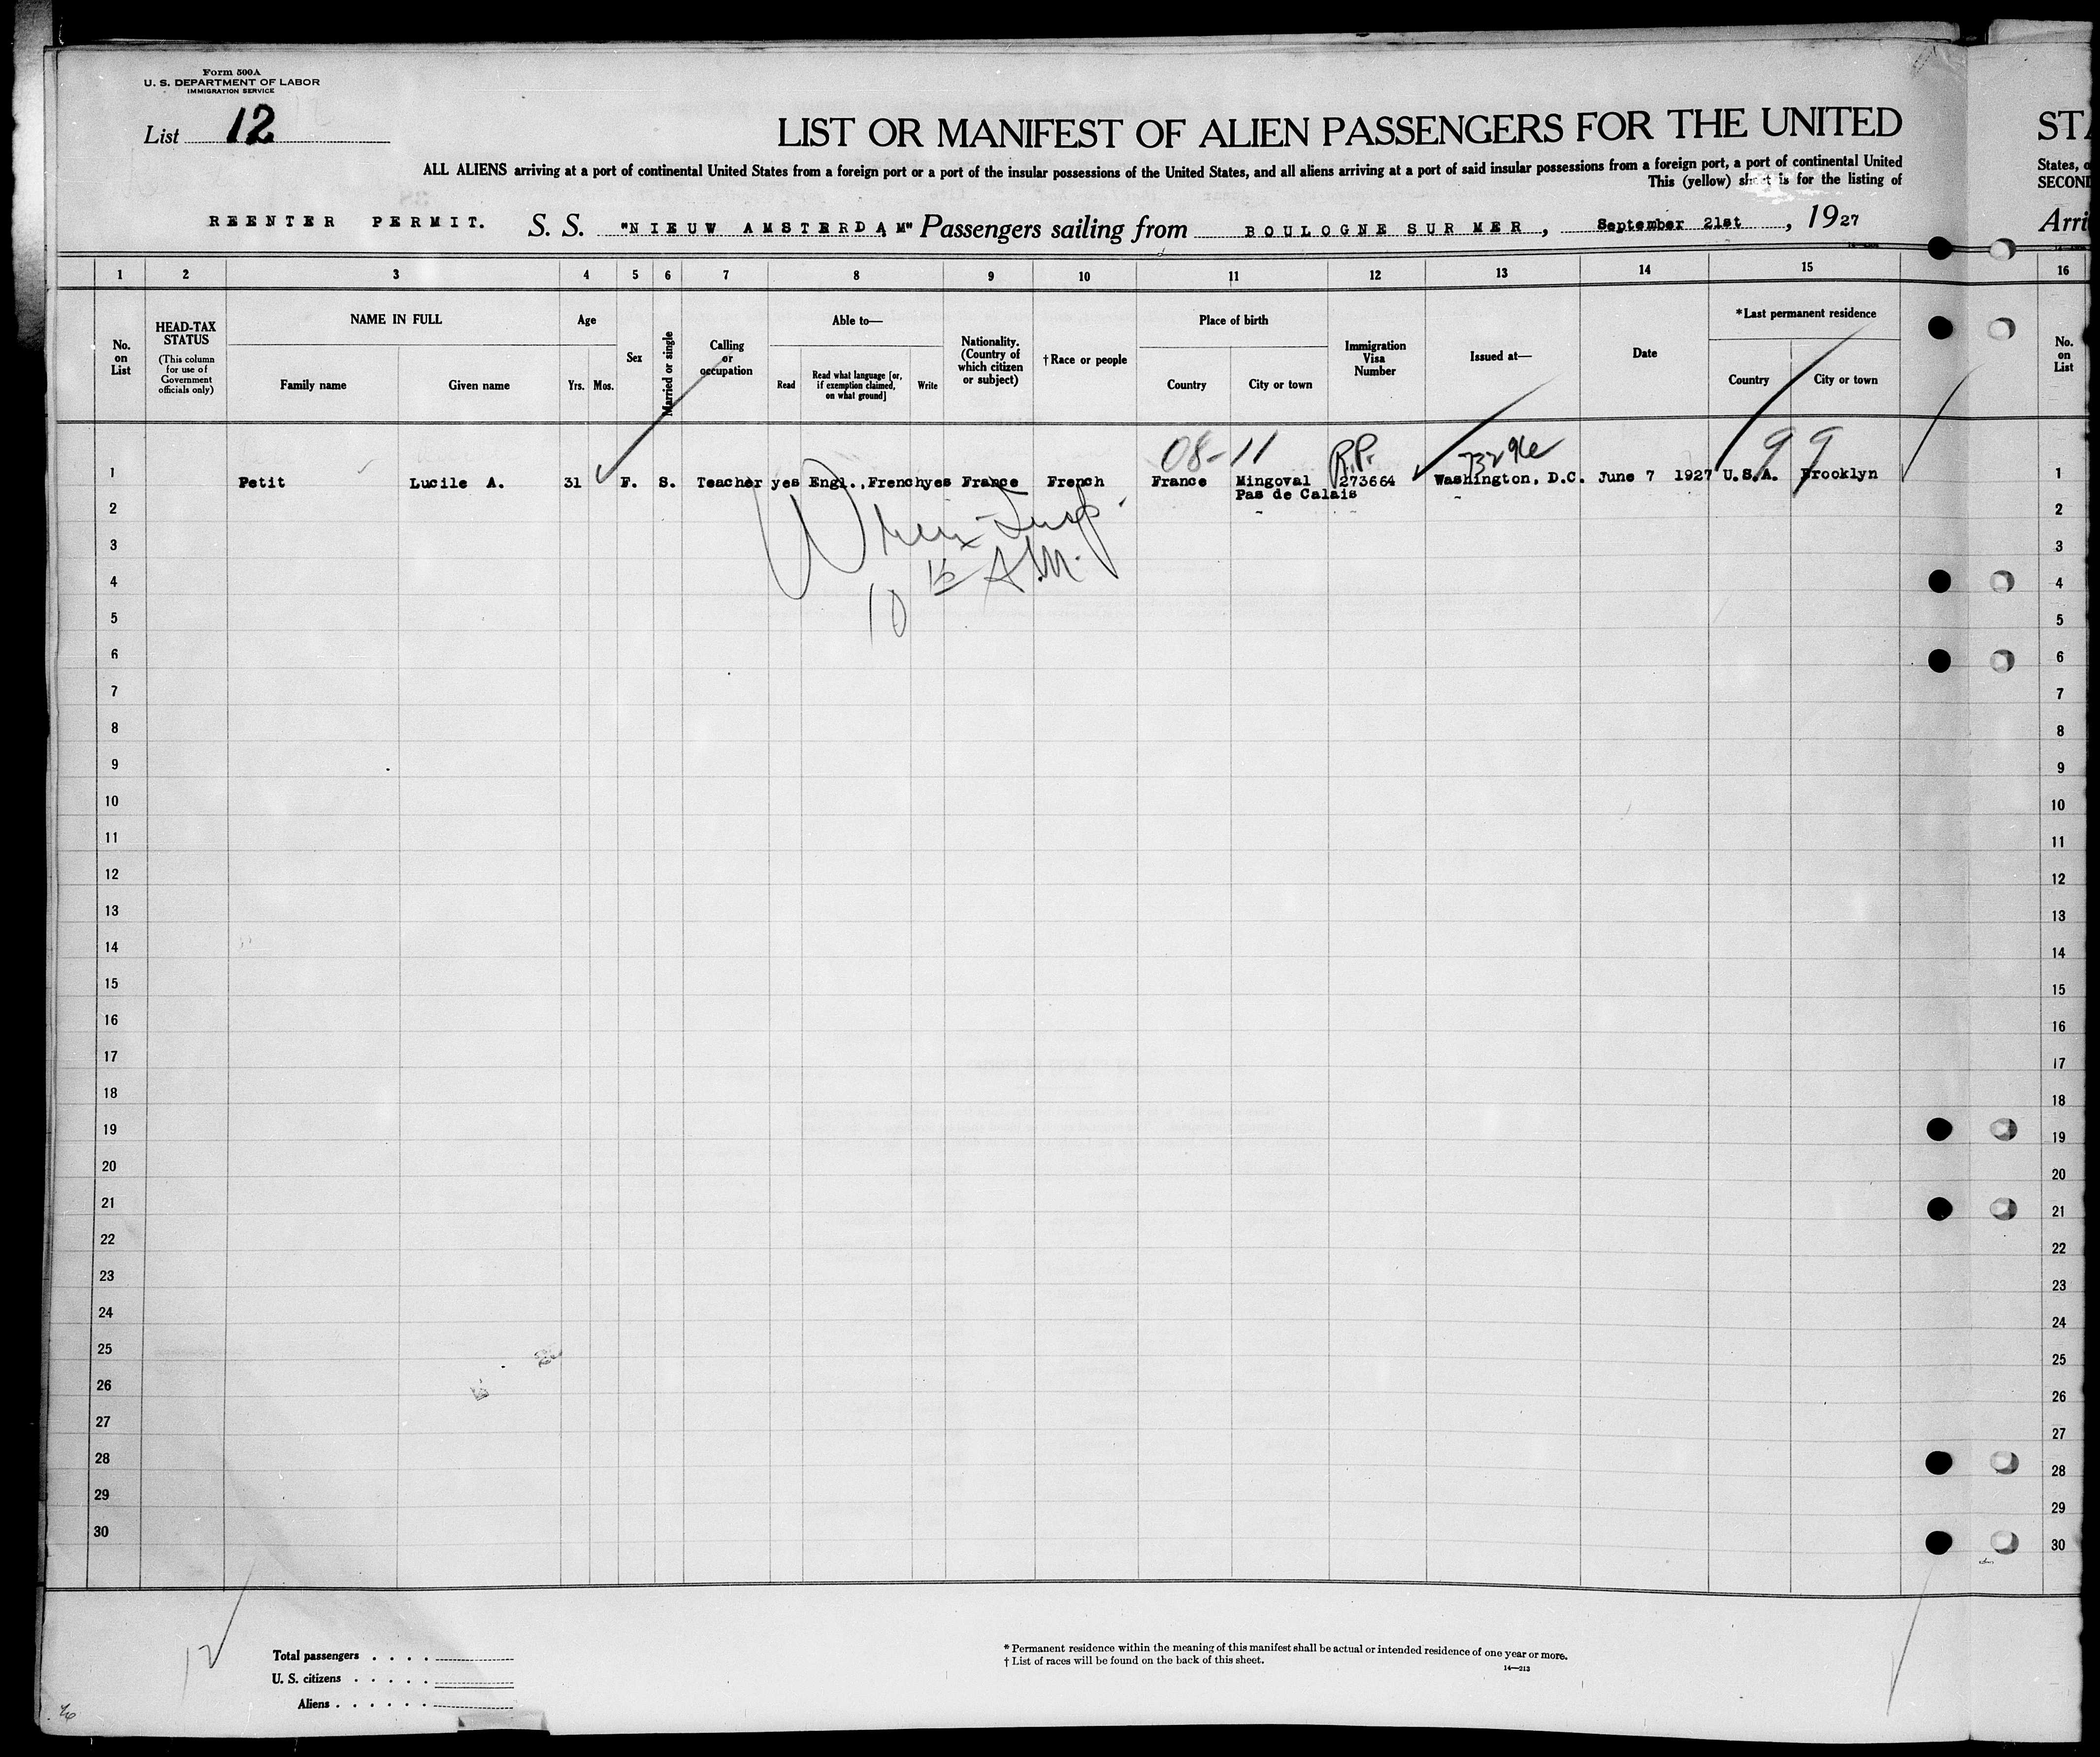 Form 500A
U. S. DEPARTMENT OF LABOR
IMMIGRATION SERVICE
List 12
LIST OR MANIFEST OF ALIEN PASSENGERS FOR THE UNITED
STA
ALL ALIENS arriving at a port of continental United States from a foreign port or a port of the insular possessions of the United States, and all aliens arriving at a port of said insular possessions from a foreign port, a port of continental United
States, o
This (yellow) sheet is for the listing of
SECOND
REENTER PERMIT. S. S. "NIEUW AMSTERDAM" Passengers sailing from BOULOGNE SUR MER, September 21st, 1927
Arri
1 2 3 4 5 6 7 8 9 10 11 12 13 14 15 16
No. on List
HEAD-TAX STATUS
(This column for use of Government officials only)
NAME IN FULL
Family name
Given name
Age
Yrs. Mos.
Sex
Married or single
Calling or occupation
Able to—
Read
Read what language [or, if exemption claimed, on what ground]
Write
Nationality. (Country of which citizen or subject)
†Race or people
Place of birth
Country
City or town
Immigration Visa Number
Issued at—
Date
*Last permanent residence
Country
City or town
No. on List
08-11 R.P. 99
1 Petit Lucile A. 31 F. S. Teacher yes Engl., French yes France French France Mingoval 273664 Washington, D.C. June 7 1927 U.S.A. Brooklyn 1
Pas de Calais
2 2
3 3
10 15 A.M.
4 4
5 5
6 6
7 7
8 8
9 9
10 10
11 11
12 12
13 13
14 14
15 15
16 16
17 17
18 18
19 19
20 20
21 21
22 22
23 23
24 24
25 25
26 26
27 27
28 28
29 29
30 30
12
Total passengers . . . .
U. S. citizens . . . . .
Aliens . . . . . .
* Permanent residence within the meaning of this manifest shall be actual or intended residence of one year or more.
† List of races will be found on the back of this sheet.
14—213